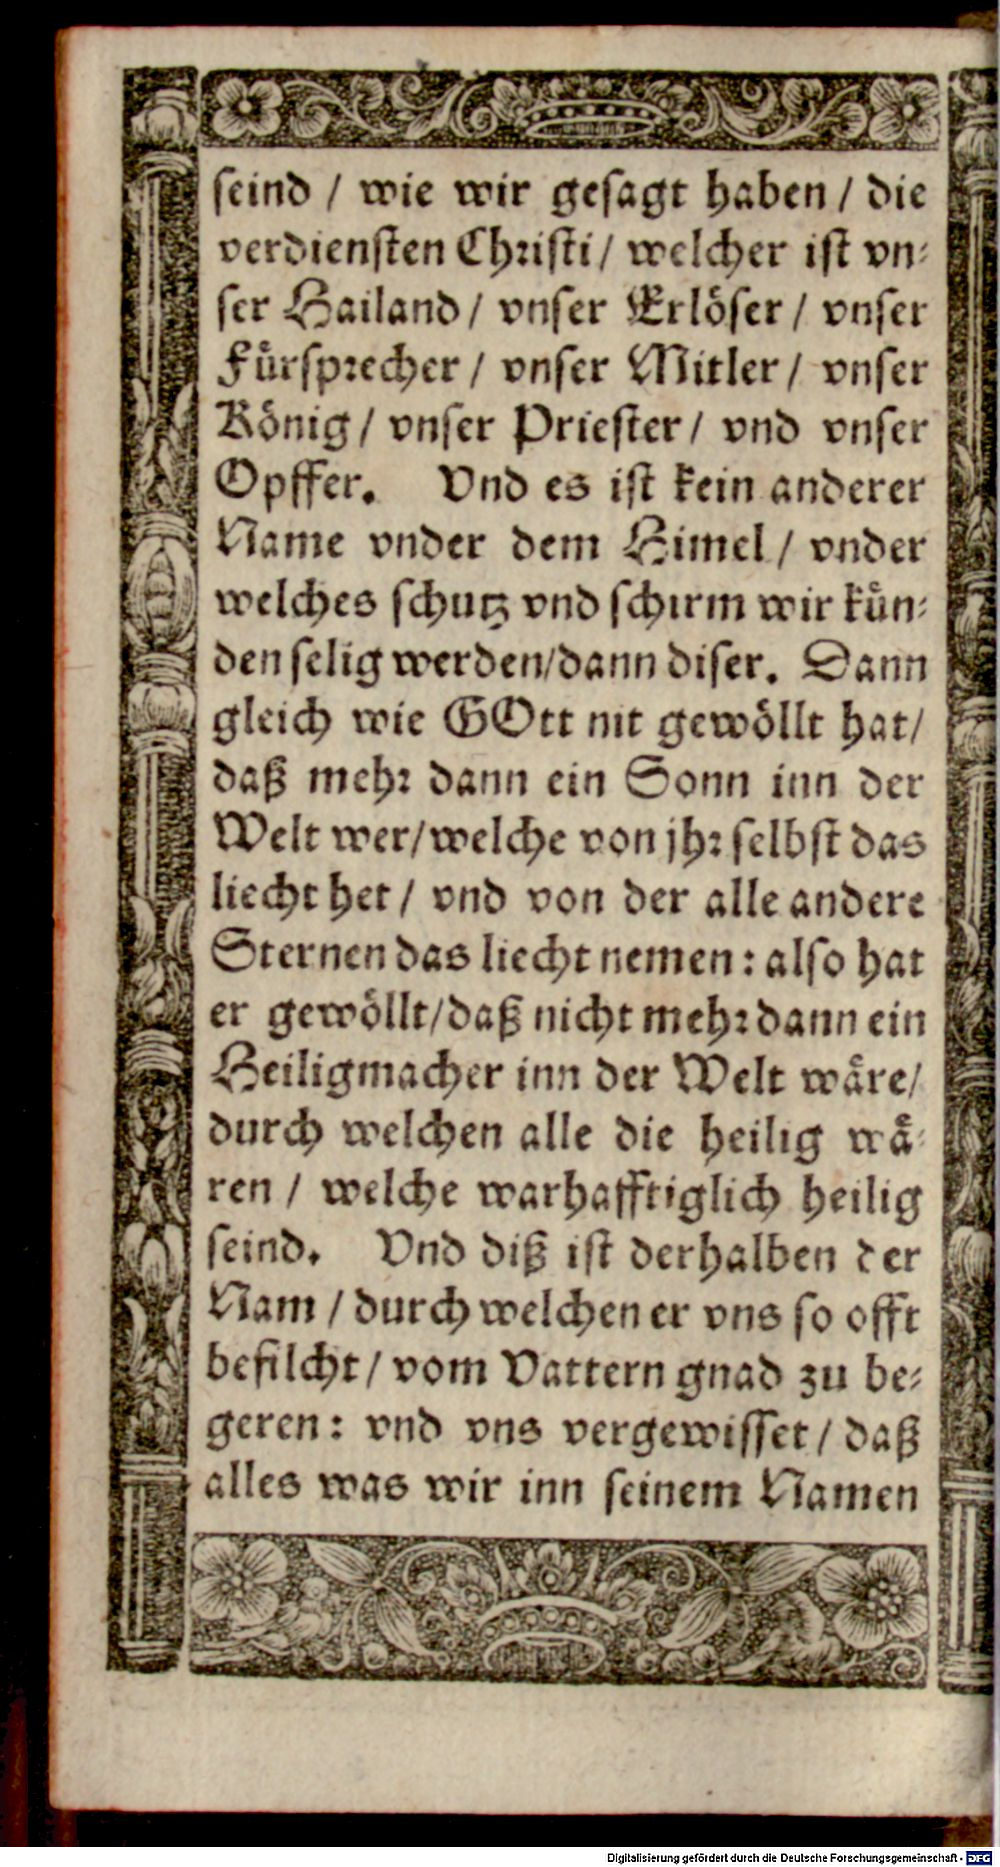 seind / wie wir gesagt haben / die
verdiensten Christi / welcher ist vn-
ser Hailand / vnser Erlöser / vnser
Fürsprecher / vnser Mitler / vnser
König / vnser Priester / vnd vnser
Opffer. Vnd es ist kein anderer
Name vnder dem Himel / vnder
welches schutz vnd schirm wir kün-
den selig werden/dann diser. Dann
gleich wie GOtt nit gewöllt hat/
daß mehr dann ein Sonn inn der
Welt wer/welche von jhr selbst das
liecht het / vnd von der alle andere
Sternen das liecht nemen: also hat
er gewöllt/daß nicht mehr dann ein
Heiligmacher inn der Welt wäre/
durch welchen alle die heilig wä-
ren / welche warhafftiglich heilig
seind. Vnd diß ist derhalben der
Nam / durch welchen er vns so offt
befilcht / vom Vattern gnad zu be-
geren: vnd vns vergewisset / daß
alles was wir inn seinem Namen
Digitalisierung gefördert durch die Deutsche Forschungsgemeinschaft - DFG